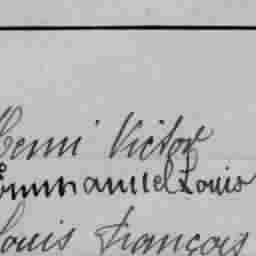 Henri Victor
Emmanuel Louis
Louis François